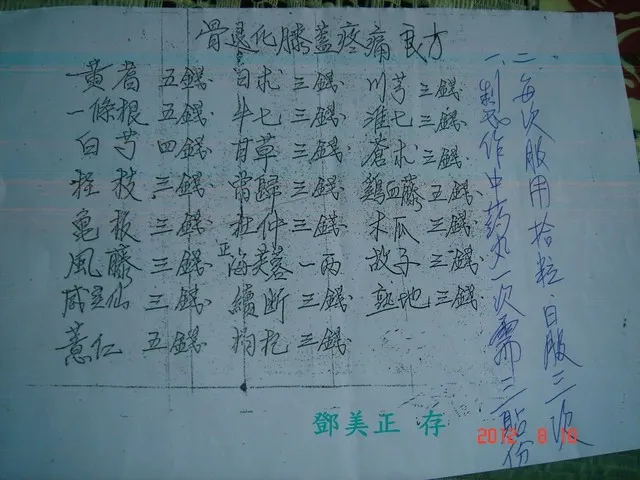 骨退化膝蓋疼痛良方
黃耆 五錢 白朮 三錢 川芎 三錢
一條根 五錢 牛七 三錢 淮七 三錢
白芍 四錢 甘草 三錢 蒼朮 三錢
桂枝 三錢 當歸 三錢 鷄血藤 五錢
亀板 三錢 杜仲 三錢 木瓜 三錢
風藤 三錢 正海芙蓉 一兩 故子 三錢
威灵仙 三錢 續断 三錢 熟地 三錢
薏仁 五錢 枸杞 三錢
一、制作中药丸一次需三點份
二、每次服用拾粒、日服三次
鄧美正 存
2012 8 10